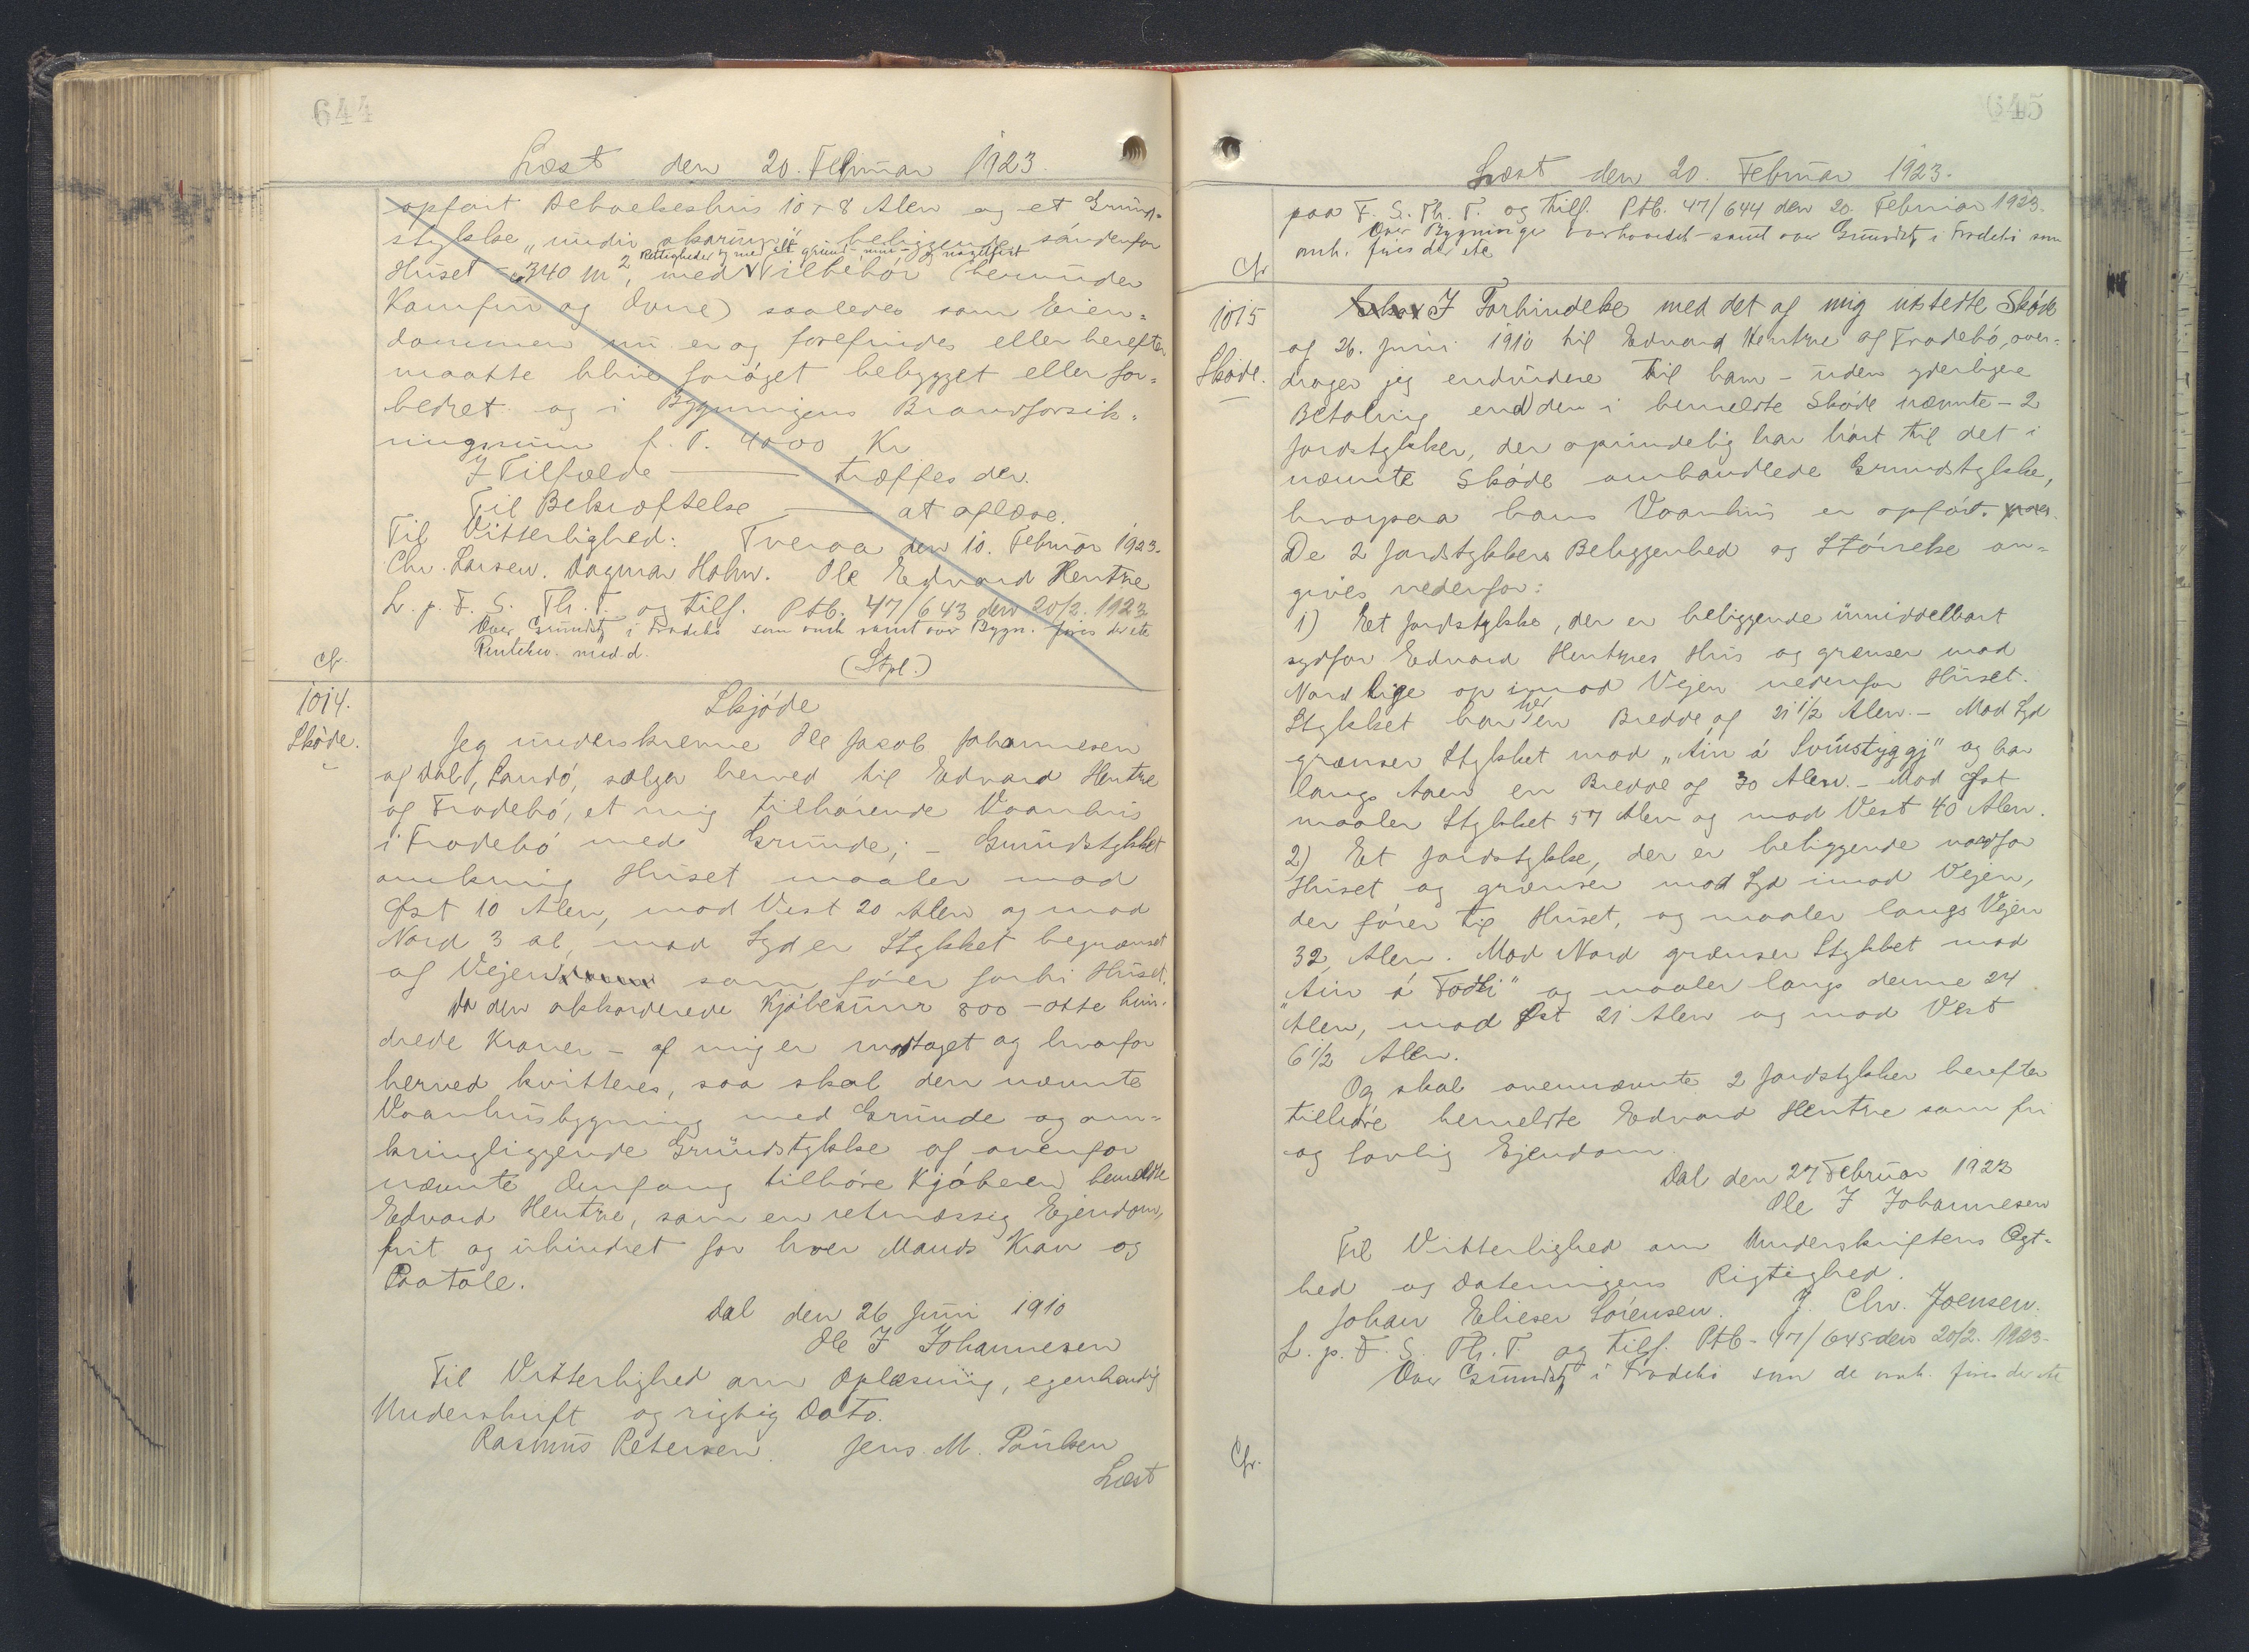 644
Læst den 20. Februar 1923.
opført Beboelseshus 10 x 8 Alen og et Grund-
stykke „undir akarunum" beliggende sóndenfor
Rettigheder og med alt grund- mur- og nagelfast
Huset - 340 m², med Tilbehör (herunder
Komfur og Ovne) saaledes som Eien-
dommen nu er og forefindes eller herefter
maatte blive foróget bebygget eller for-
bedret og i Bygningens Brandforsik-
ringssum f. T. 4000 Kr
I Tilfælde — træffes der.
Til Bekræftelse — at aflæse.
Til Vitterlighed: Tveraa den 10. Februar 1923.
Chr. Larsen. Dagmar Holm. Ole Edvard Hentze
L. p. F. S. Th. T. og tilf. Ptb. 47/643 den 20/2. 1923
Over Grundst i Frodebö som omh samt over Bygn. fives der ete
med d.
Cfr. (Stpl.)
1014. Skjóde
Skóde. Jeg underskrevne Ole Jacob Johannesen
af Dal, Sandó, sælger herved til Edvard Hentze
af Frodebó, et mig tilhórende Vaanhus
i Frodebó med Grunde; - Grundstykket
omkring Huset maaler mod
Øst 10 Alen, mod Vest 20 Alen og mod
Nord 3 al, mod Syd er Stykket begrænset
af Vejen som fórer forbi Huset.
Da den akkorderede Kjóbesum 800 - otte hun-
drede Kroner - af mig er modtaget og hvorfor
herved kvitteres, saa skal den nævnte
Vaanhusbygning med Grunde og om-
kringliggende Grundstykke af ovenfor
nævnte Omfang tilhóre Kjóberen bemeldte
Edvard Hentze, som en retmæssig Ejendom,
frit og uhindret for hver Mands Krav og
Paatale.
Dal den 26 Juni 1910
Ole J Johannesen
Til Vitterlighed om Oplæsning, egenhændig
Underskrift og rigtig Dato.
Rasmus Petersen. Jens. M. Poulsen
Læst
645
Læst den 20. Februar 1923.
paa F. S. Th. T. og tilf. Ptb. 47/644 den 20. Februar 1923.
Over Bygninge overhovedet - samt over Grundst i Frodebö som
omh. fives der ete
Cfr
1015 I Forbindelse med det af mig udstedte Skóde
af 26. Juni 1910 til Edvard Hentze af Frodebó, over-
Skóde. drager jeg endvidere til ham - uden yderligere
Betaling end den i bemeldte Skóde nævnte - 2
Jordstykker, der oprindelig har hórt til det i
nævnte Skóde omhandlede Grundstykke,
hvorpaa hans Vaanhus er opfórt.
De 2 Jordstykkers Beliggenhed og Stórrelse an-
gives nedenfor:
1) Et Jordstykke, der er beliggende umiddelbart
sydfor Edvard Hentzes Hus og grænser mod
Nord lige op imod Vejen nedenfor Huset.
Stykket har her en Bredde af 21 1/2 Alen. - Mod Syd
grænser Stykket mod „Áin á Svínstyggj" og har
langs Aaen en Bredde af 30 Alen. - Mod Øst
maaler Stykket 57 Alen og mod Vest 40 Alen.
2) Et Jordstykke, der er beliggende nordfor
Huset og grænser mod Syd imod Vejen,
der fóres til Huset, og maaler langs Vejen
32 Alen. Mod Nord grænser Stykket mod
"Áin á " og maaler langs denne 24
Alen, mod Øst 21 Alen og mod Vest
6 1/2 Alen.
Og skal ovennævnte 2 Jordstykker herefter
tilhóre bemeldte Edvard Hentze som fri
og lovlig Ejendom.
Dal den 27 Februar 1922
Ole J Johannesen
Til Vitterlighed om Underskriftens Ægt-
hed og Dateringens Rigtighed.
Johan Elieser Sórensen. J. Chr. Joensen.
L. p. F. S. Th. T. og tilf. Ptb - 47/645 den 20/2. 1923-
Over Grundst i Frodebö som de omh. fives der ete
Cfr.